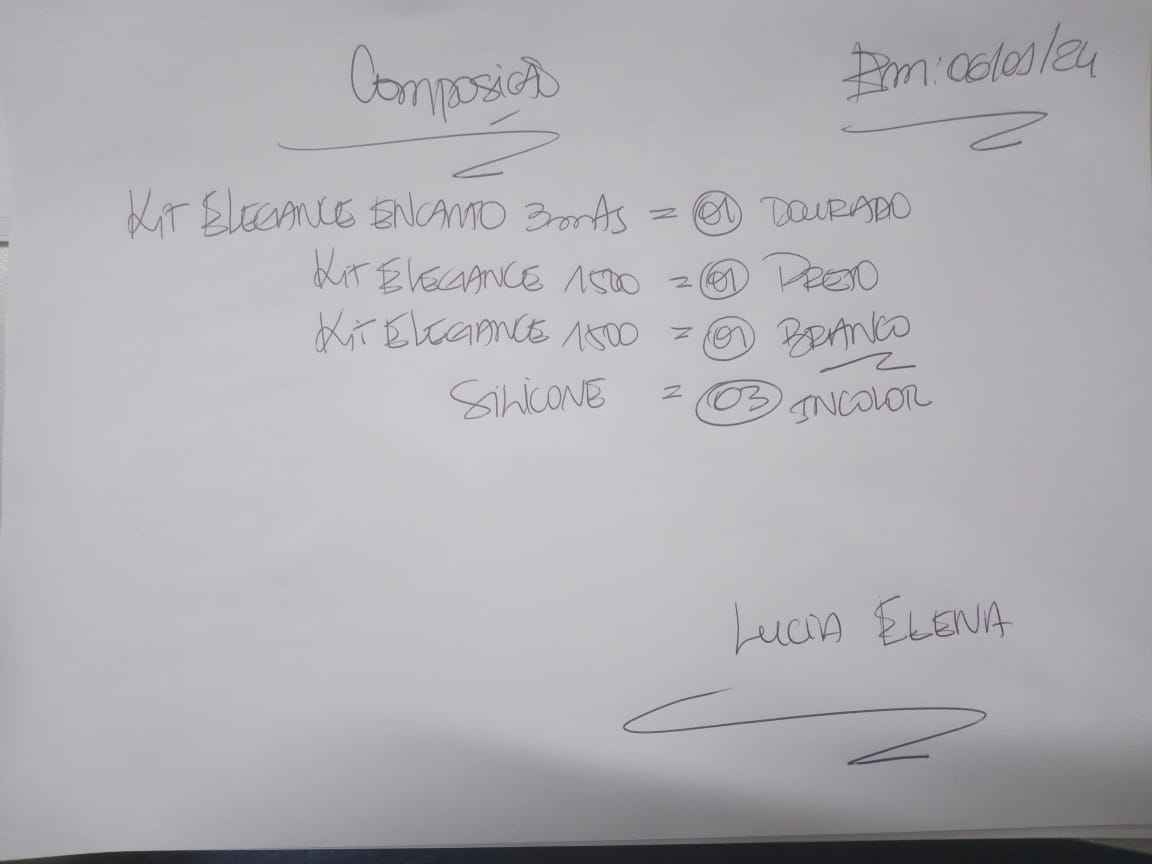 Composição
Em: 06/01/24
KIT ELEGANCE ENCANTO 3mts = 01 DOURADO
KIT ELEGANCE 1500 = 01 PRETO
KIT ELEGANCE 1500 = 01 BRANCO
SILICONE = 03 INCOLOR
LUCIA ELENA